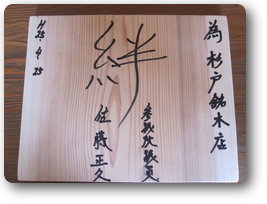 為 杉戸銘木店
絆
参議院議員
佐藤正久
H25.4.25